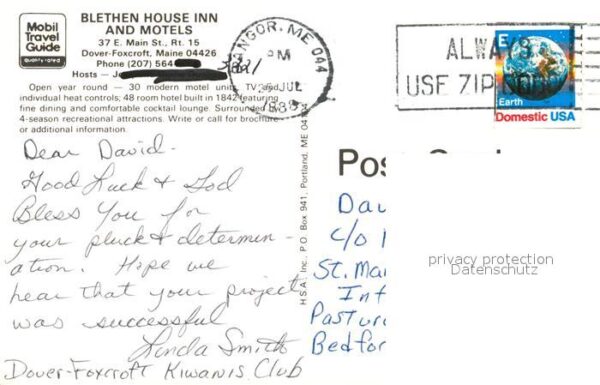 Mobil
Travel
Guide
quality rated
BLETHEN HOUSE INN
AND MOTELS
37 E. Main St., Rt. 15
Dover-Foxcroft, Maine 04426
Phone (207) 564
Hosts —
Open year round — 30 modern motel units, TV and
individual heat controls; 48 room hotel built in 1842 featuring
fine dining and comfortable cocktail lounge. Surrounded by
4-season recreational attractions. Write or call for brochure
or additional information.
BANGOR, ME 044
PM
JUL
1988
ALWAYS
USE ZIP CODE
E
Earth
Domestic USA
Dear David-
Good Luck & God
Bless You for
your pluck & determin-
ation. Hope we
hear that your project
was successful
Linda Smith
Dover-Foxcroft Kiwanis Club
H.S.A. Inc. P.O. Box 941, Portland, ME 04104
Pos
Dav
C/o
St. Mar
Int
Pastur
Bedfor
privacy protection
Datenschutz